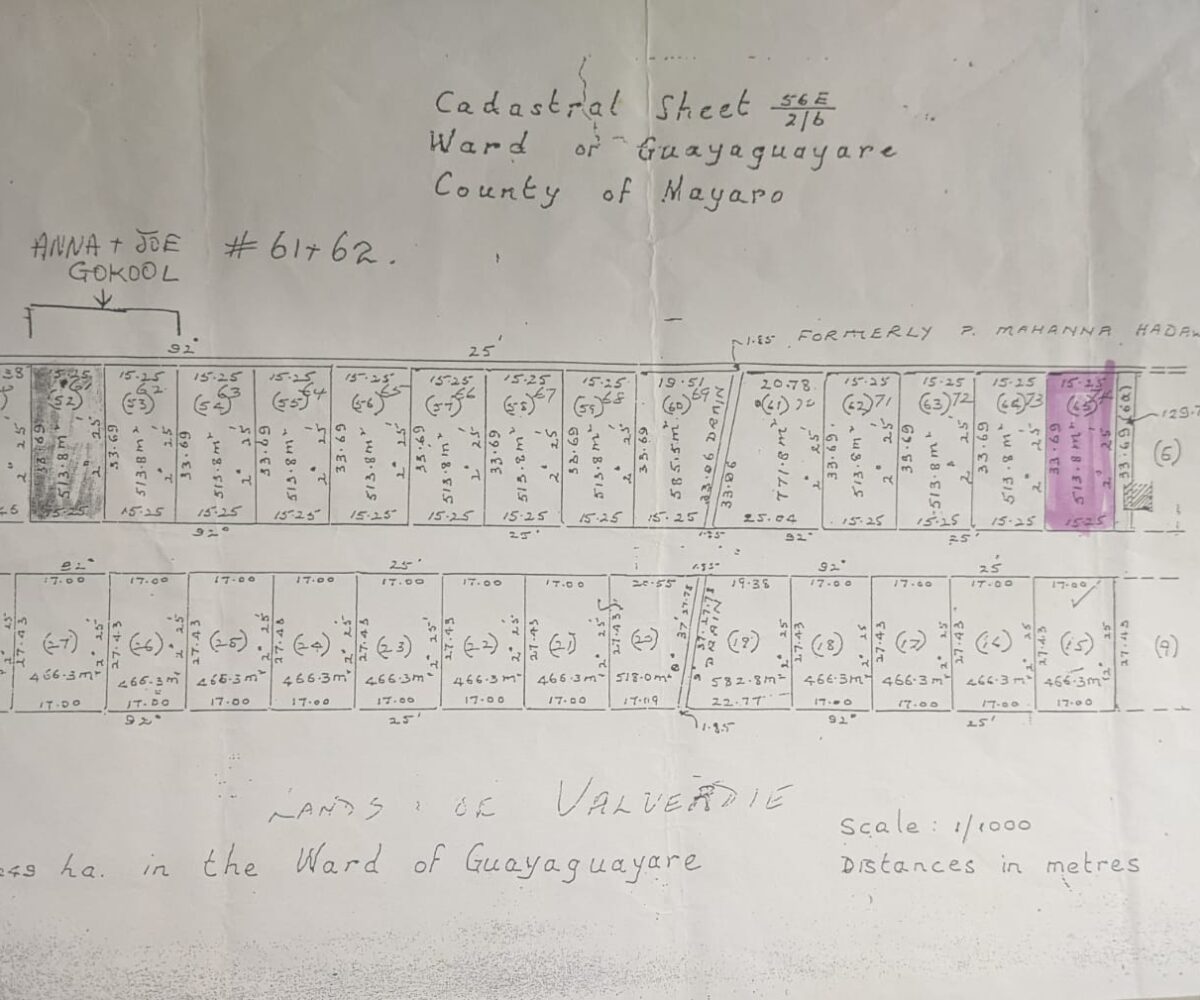 Cadastral Sheet 56E/216
Ward of Guayaguayare
County of Mayaro
ANNA + JOE # 61+62.
GOKOOL
92° 25' 1.85 FORMERLY P. MAHANNA
15.25 15.25 15.25 15.25 15.25 15.25 15.25 19.51 20.78 15.25 15.25 15.25 15.25
(52) 61 (53) 62 (54) 63 (55) 64 (56) 65 (57) 66 (58) 67 (59) 68 (60) 69 (61) (62) 71 (63) 72 (64) 73 (65) (6a)
33.69 513.8m² 2° 25'
33.69 513.8m² 2° 25'
33.69 513.8m² 2° 25'
33.69 513.8m² 2° 25'
33.69 513.8m² 2° 25'
33.69 513.8m² 2° 25'
33.69 513.8m² 2° 25'
33.69 513.8m² 2° 25'
33.69 585.5m² 33.06 DRAIN
33.06 771.8m² 2° 25'
33.69 513.8m² 2° 25'
33.69 513.8m² 2° 25'
33.69 513.8m² 2° 25'
33.69 513.8m² 2° 25'
33.69
15.25 15.25 15.25 15.25 15.25 15.25 15.25 15.25 15.25 25.04 15.25 15.25 15.25 15.25
92° 25' 1.85 92° 25'
92° 25' 1.85 92° 25'
17.00 17.00 17.00 17.00 17.00 17.00 17.00 20.55 19.38 17.00 17.00 17.00 17.00
(27) (26) (25) (24) (23) (22) (21) (20) DRAIN (19) (18) (17) (16) (15) (9)
27.43 2° 25'
466.3m² 466.3m² 466.3m² 466.3m² 466.3m² 466.3m² 466.3m² 518.0m² 582.8m² 466.3m² 466.3m² 466.3m² 466.3m²
17.00 17.00 17.00 17.00 17.00 17.00 17.00 22.77 17.00 17.00 17.00 17.00
92° 25' 1.85 92° 25'
LANDS OF VALVERDIE
Scale : 1/1000
ha. in the Ward of Guayaguayare
Distances in metres